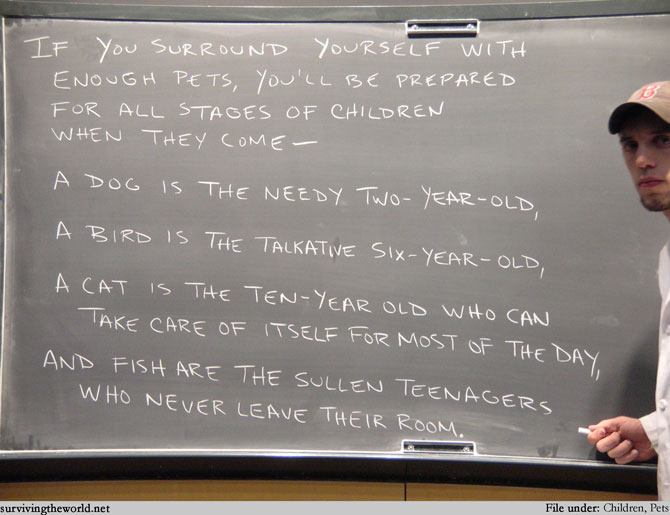 IF YOU SURROUND YOURSELF WITH
ENOUGH PETS, YOU'LL BE PREPARED
FOR ALL STAGES OF CHILDREN
WHEN THEY COME—
A DOG IS THE NEEDY TWO-YEAR-OLD,
A BIRD IS THE TALKATIVE SIX-YEAR-OLD,
A CAT IS THE TEN-YEAR OLD WHO CAN
TAKE CARE OF ITSELF FOR MOST OF THE DAY,
AND FISH ARE THE SULLEN TEENAGERS
WHO NEVER LEAVE THEIR ROOM.
B
survivingtheworld.net
File under: Children, Pets